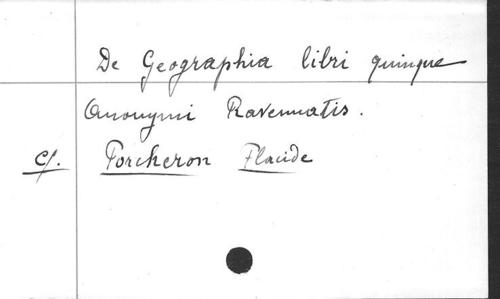 De Geographia libri quinque
Anonymi Ravennatis.
Cf. Porcheron Placide